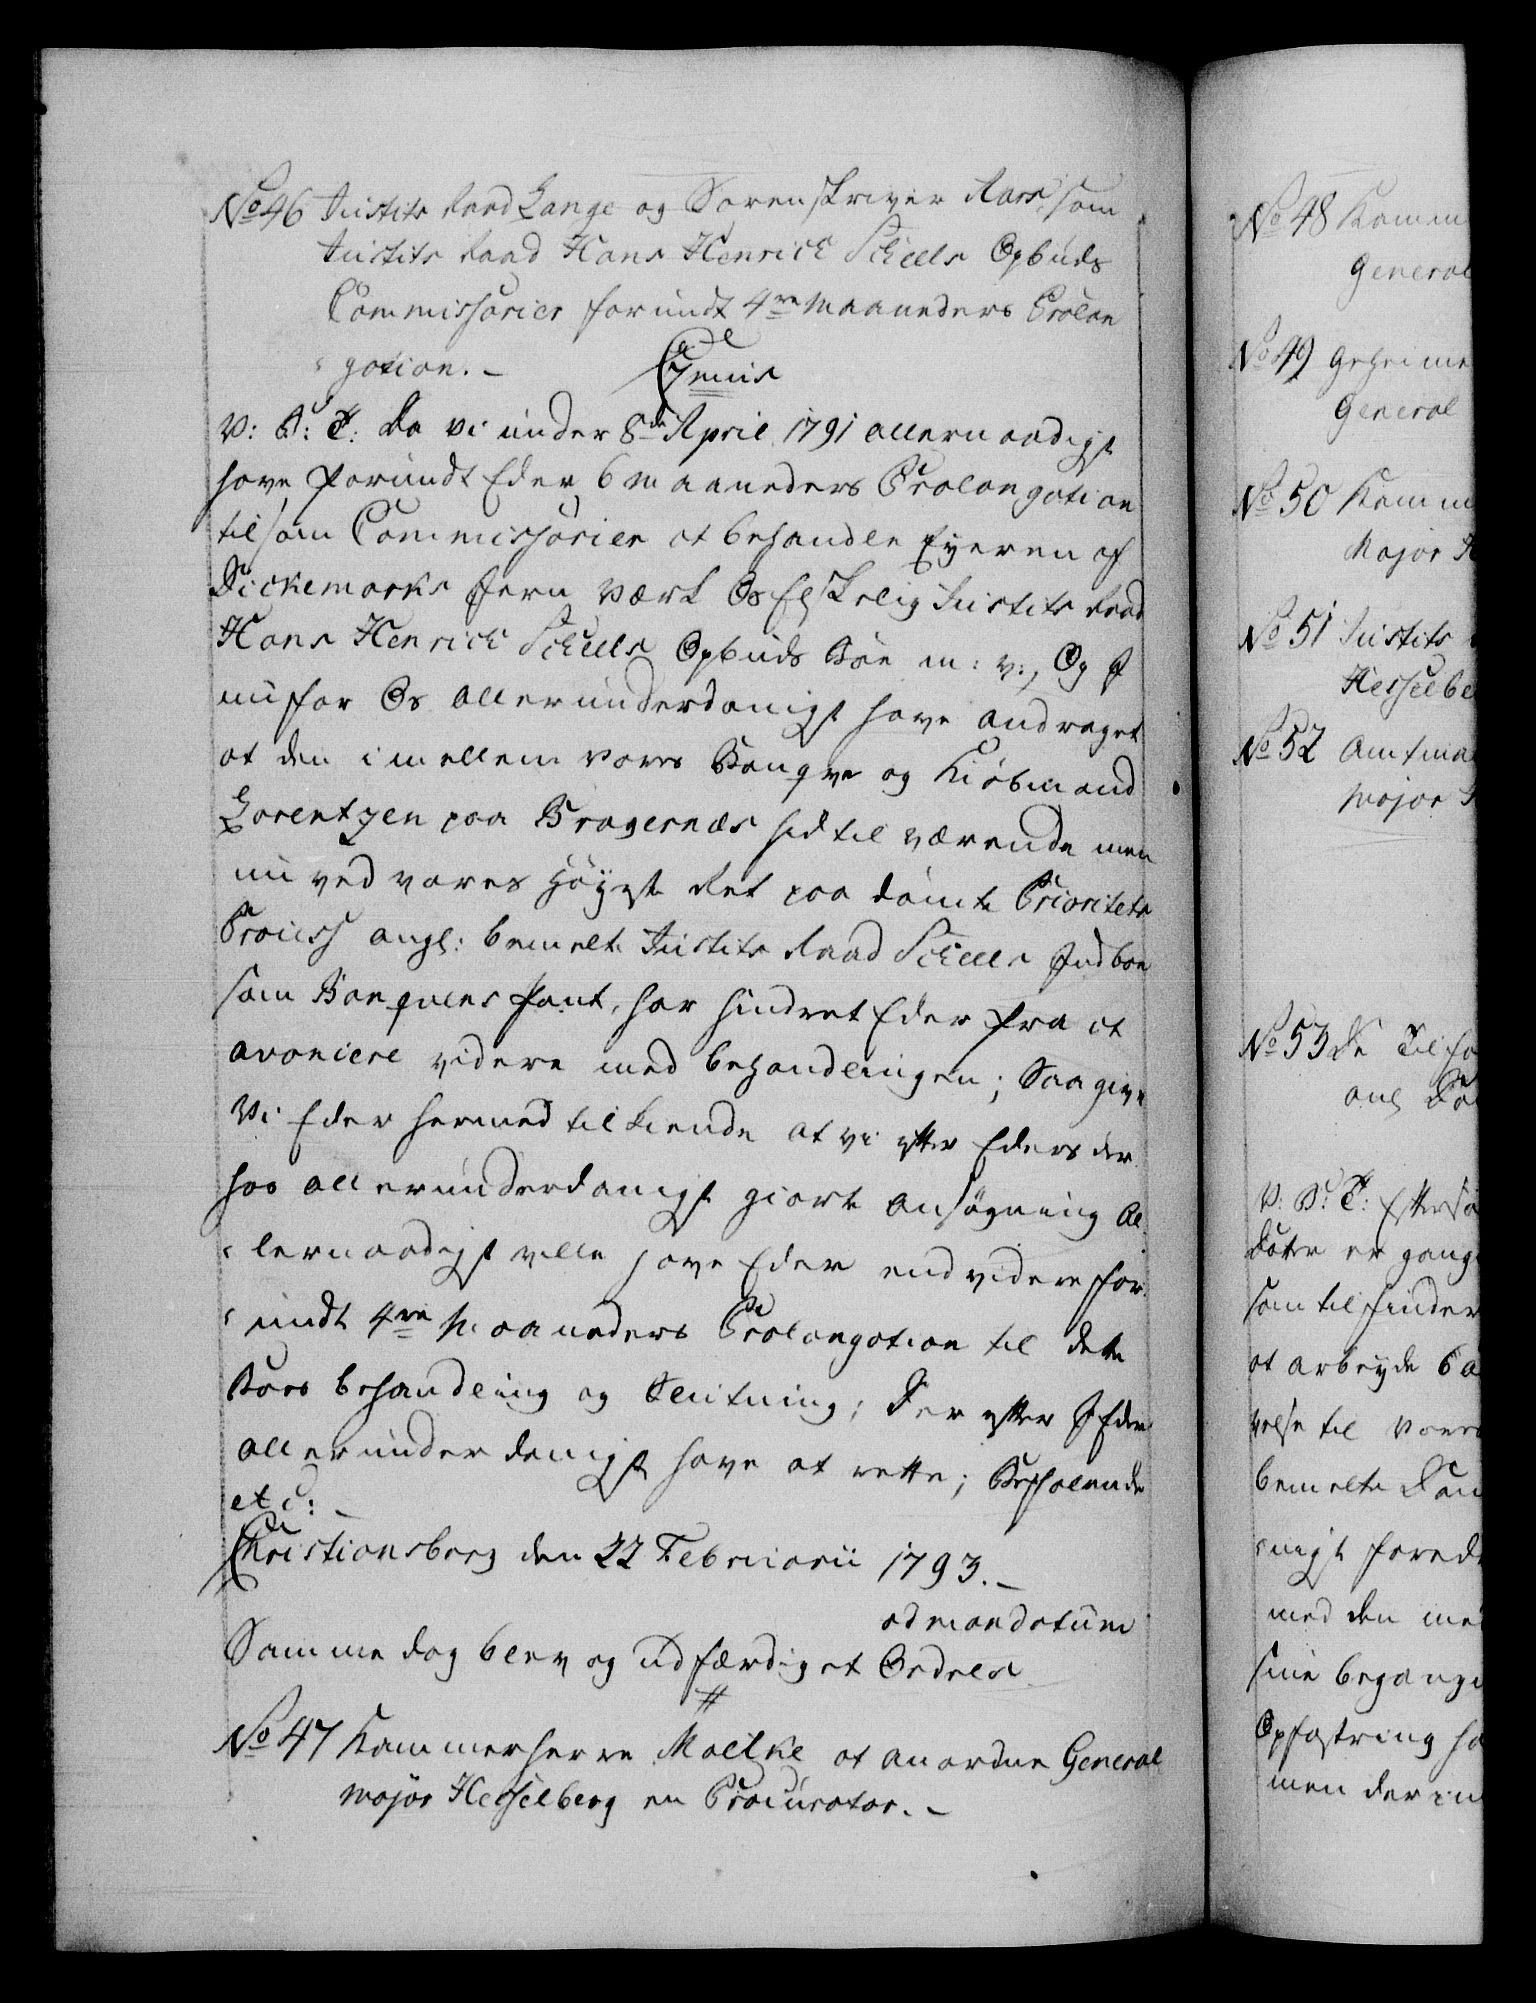 No 46 Justits Raad Lange og Sorenskriver Aars, som
Justits Raad Hans Henrich Scheels Opbuds
Commissarier forundt 4re Maaneders Prolon
gation. –
V: G: T: Da vi under 8de April 1791 allernaadigst
have forundt Eder 6 maaneders Prolongation
til som Commissarier at behandle Eyeren af
Dickemarks Jern Værk Os Elskelig Justits Raad
Hans Henrich Scheels Opbuds Boe m: v:, Og I
nu for Os allerunderdanigst have andraget
at den imellem vores Banqve og Kiøbmand
Lorentzen paa Bragernæs hidtil værende men
nu ved vores Høyeste Ret paa dømte Prioritets
Process angl: bemelte Justits Raad Scheels Indboe
som Banquens Pant, har hindret Eder fra at
avancere videre med behandlingen; Saa give
Vi Eder hermed tilkiende at vi efter Eders der
hos allerunderdanigst giorte Ansøgning Al
lernaadigst ville have Eder endvidere for
undt 4re Maaneders Prolongation til dette
Boes behandling og Slutning; Der efter I Eder
allerunderdanigst have at rette; Befalende
etc: –
Christiansborg den 22 Februarii 1793. –
ad mandatum
Samme dag blev og udfærdiget Ordres
#
No 47 Kammerherre Moltke at anordne General
Major Hesselberg en Procurator. –
No 48 Kamm
General
No 49 Geheime
General
No 50 Kamm
Major H
No 51 Justits
Hesselbe
No 52 Amtma
Major
No 53 De Tilfo
ang
V: G: T: Eftersom
er gang
som tilfinder
at arbeyde
velse til vores
bemelte
nigst
med den
sine begang
Opfostring
men